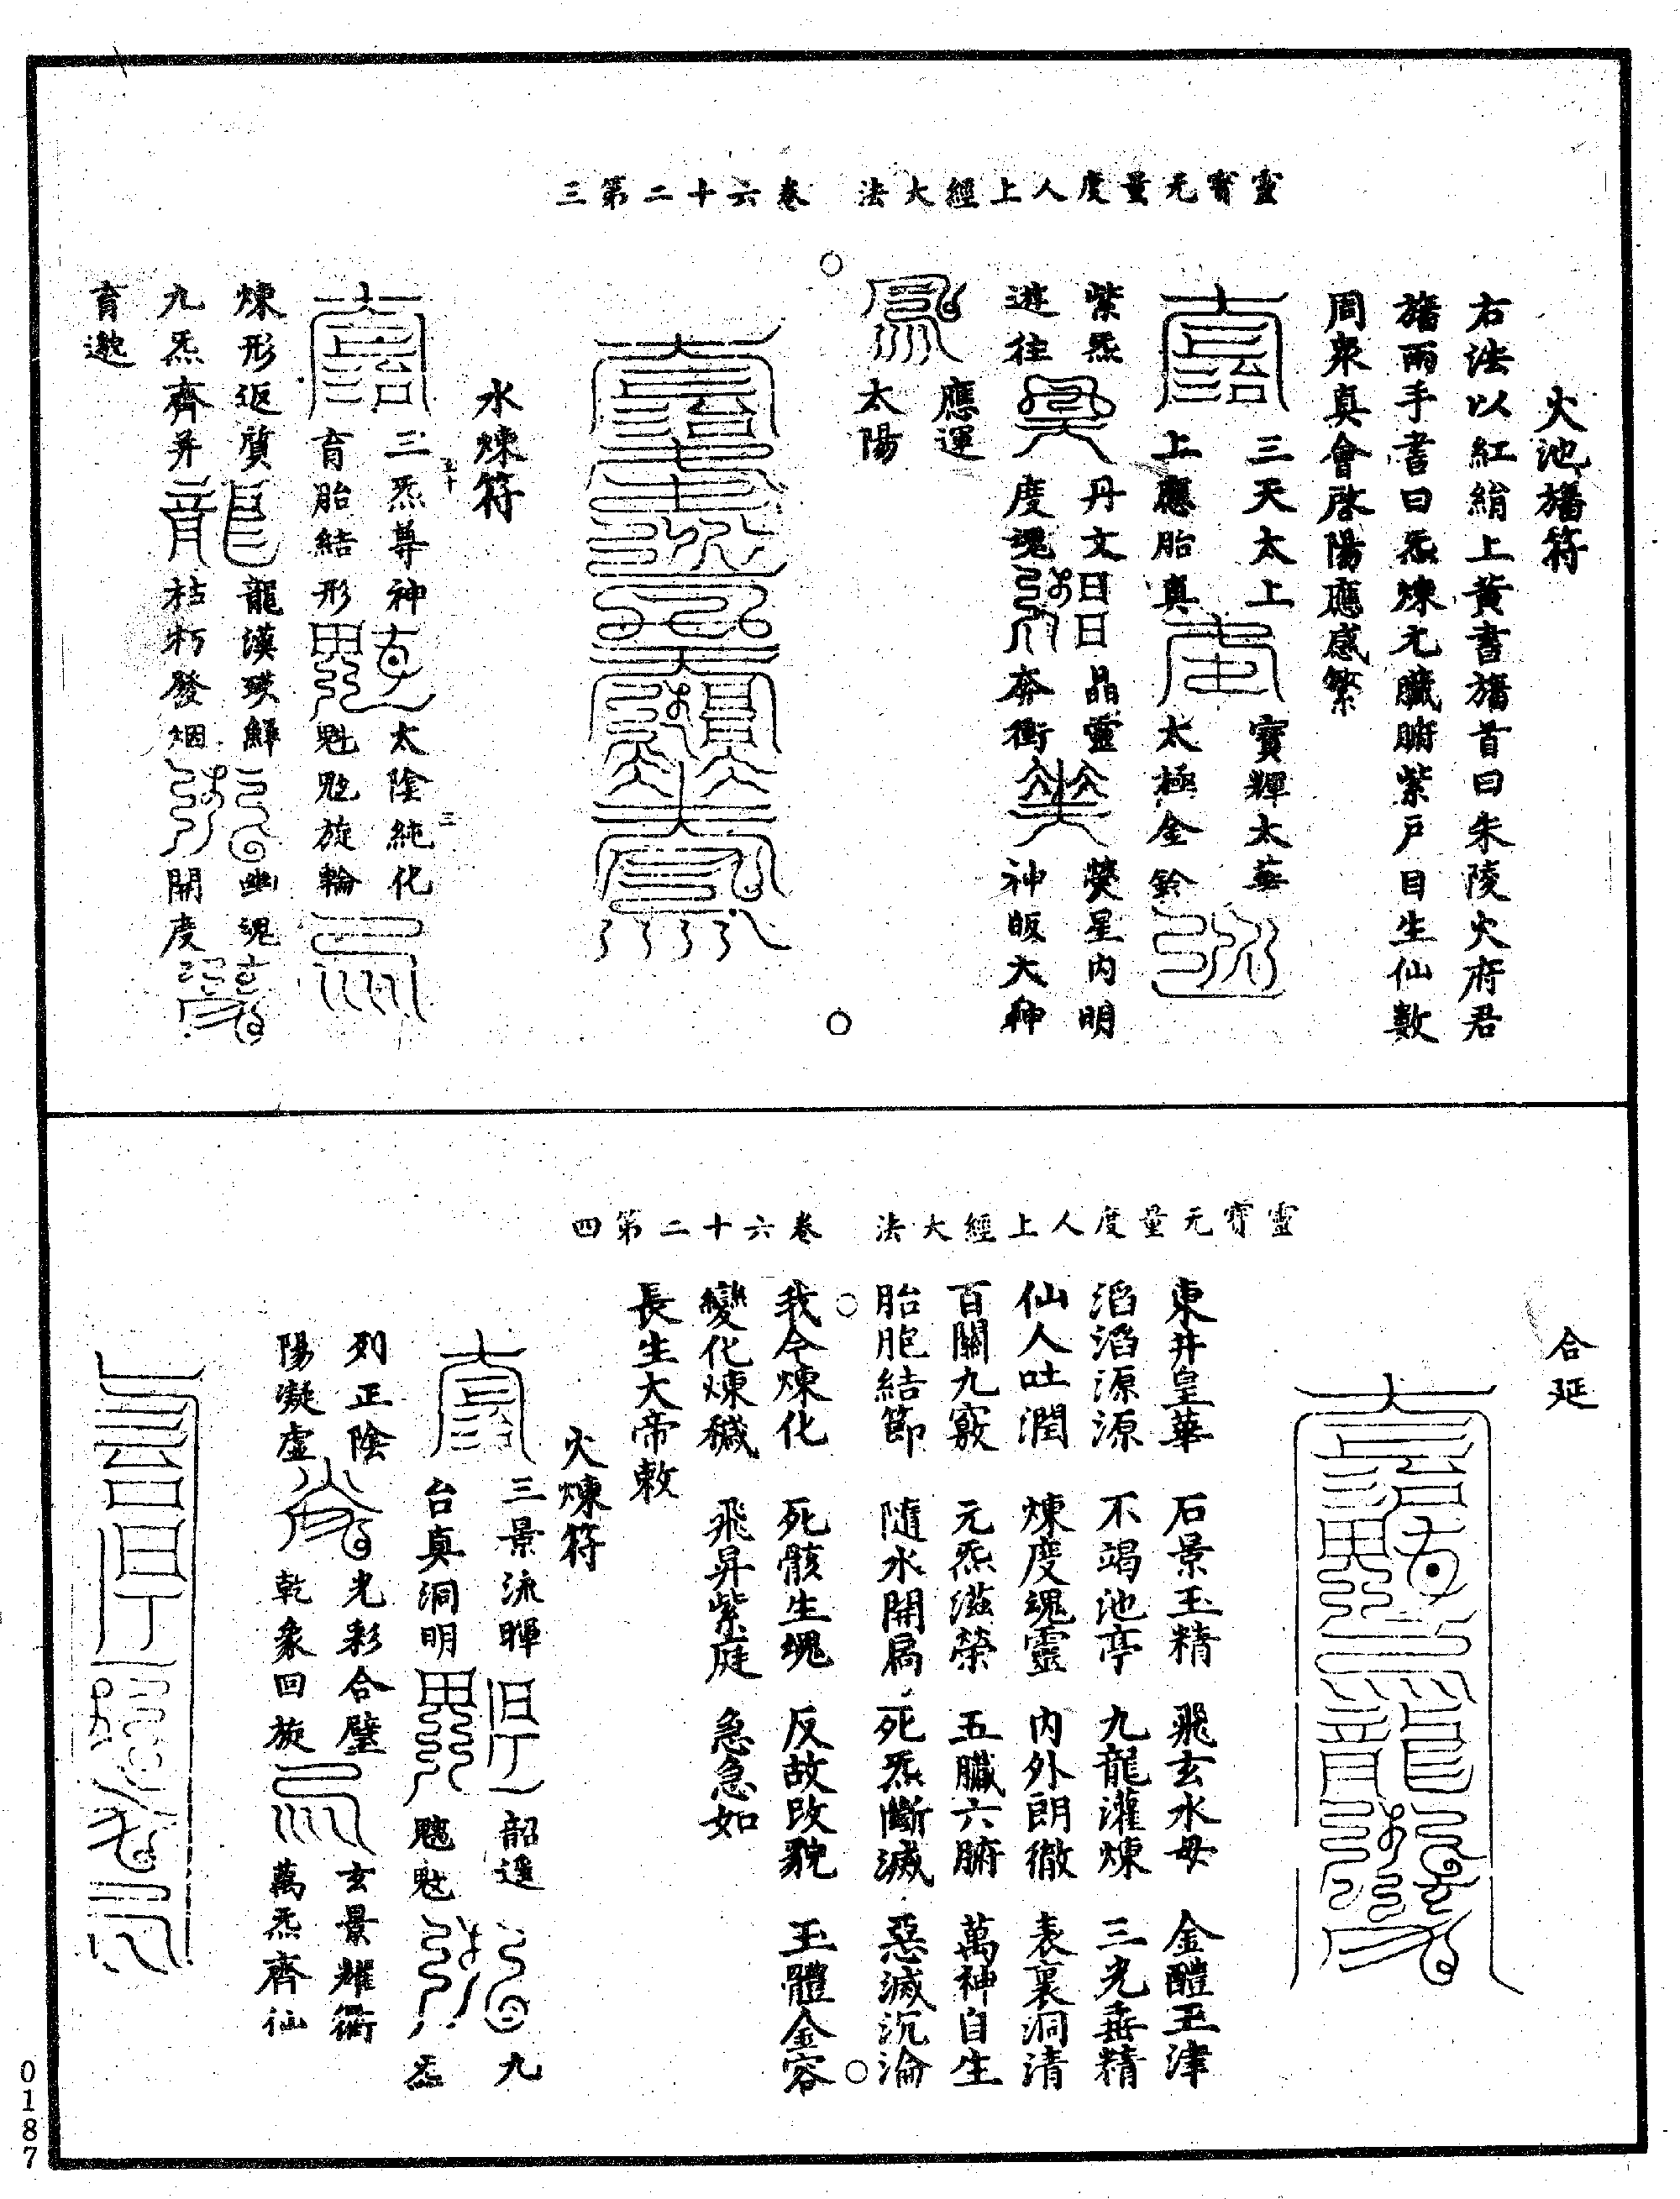 靈寶无量度人上經大法　卷六十二第三
火池旛符
右法以紅絹上黃書旛首曰朱陵火府君
旛兩手書曰炁煉元臟腑紫戶目生仙數
周衆真會啓陽應感繁
三天太上　寶輝太華
上應胎真　太極金鈴
紫炁　丹文日日晶靈　熒星內明
遊往　度魂　奔衝　神皈大神
應運
太陽
水煉符
三炁尊神　太陰純化
育胎結形　魁魁旋輪
煉形返質　龍漢瑛鮮　幽魂
九炁齊并　枯朽發烟　開度
育邀
靈寶元量度人上經大法　卷六十二第四
合延
東井皇華　石景玉精　飛玄水母　金醴玉津
滔滔源源　不竭池亭　九龍灌煉　三光垂精
仙人吐潤　煉度魂靈　內外朗徹　表裏洞清
百關九竅　元炁滋榮　五臟六腑　萬神自生
胎胞結節　隨水開扃　死炁斷滅　惡滅沉淪
我今煉化　死骸生魂　反故改貌　玉體金容
變化煉穢　飛昇紫庭　急急如
長生大帝敕
火煉符
三景流暉　韶遥　九
台真洞明　魁　炁
列正陰　光彩合璧　玄景耀衝
陽凝虛　乾象回旋　萬炁齊仙
0187